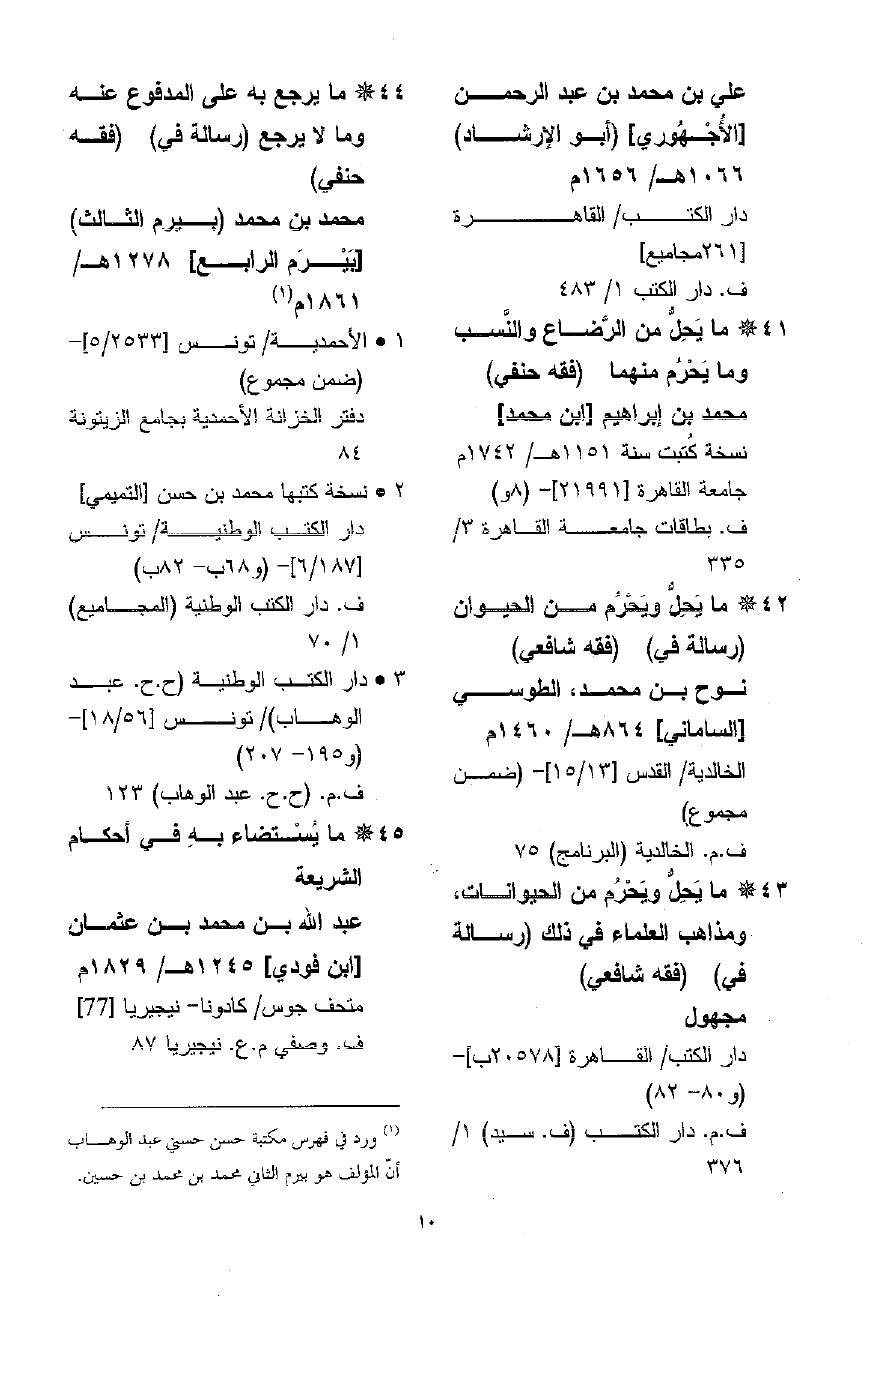 علي بن محمد بن عبد الرحمن
[الأُجْهُوري] (أبو الإرشاد)
١٠٦٦هـ/ ١٦٥٦م
دار الكتب/ القاهرة
[٢٦١مجاميع]
ف. دار الكتب ١/ ٤٨٣
٤١* ما يَحِلُّ من الرَّضاع والنَّسب
وما يَحْرُم منهما (فقه حنفي)
محمد بن إبراهيم [ابن محمد]
نسخة كُتبت سنة ١١٥١هـ/ ١٧٤٢م
جامعة القاهرة [٢١٩٩١]- (٨و)
ف. بطاقات جامعة القاهرة ٣/
٣٣٥
٤٢* ما يَحِلُّ ويَحْرُم من الحيوان
(رسالة في) (فقه شافعي)
نوح بن محمد، الطوسي
[الساماني] ٨٦٤هـ/ ١٤٦٠م
الخالدية/ القدس [١٥/١٣]- (ضمن
مجموع)
ف.م. الخالدية (البرنامج) ٧٥
٤٣* ما يَحِلُّ ويَحْرُم من الحيوانات،
ومذاهب العلماء في ذلك (رسالة
في) (فقه شافعي)
مجهول
دار الكتب/ القاهرة [٢٠٥٧٨ب]-
(و٨٠- ٨٢)
ف.م. دار الكتب (ف. سيد) ١/
٣٧٦
٤٤* ما يرجع به على المدفوع عنه
وما لا يرجع (رسالة في) (فقه
حنفي)
محمد بن محمد (بيرم الثالث)
[بَيْرَم الرابع] ١٢٧٨هـ/
١٨٦١م(١)
١ • الأحمدية/ تونس [٥/٢٥٣٣]-
(ضمن مجموع)
دفتر الخزانة الأحمدية بجامع الزيتونة
٨٤
٢ • نسخة كتبها محمد بن حسن [التميمي]
دار الكتب الوطنية/ تونس
[٦/١٨٧]- (و٦٨ب- ٨٢ب)
ف. دار الكتب الوطنية (المجاميع)
١/ ٧٠
٣ • دار الكتب الوطنية (ح.ح. عبد
الوهاب)/ تونس [١٨/٥٦]-
(و١٩٥- ٢٠٧)
ف.م. (ح.ح. عبد الوهاب) ١٢٣
٤٥* ما يُسْتضاء بهِ في أحكام
الشريعة
عبد الله بن محمد بن عثمان
[ابن فودي] ١٢٤٥هـ/ ١٨٢٩م
متحف جوس/ كادونا- نيجيريا [77]
ف. وصفي م.ع. نيجيريا ٨٧
(١) ورد في فهرس مكتبة حسن حسني عبد الوهاب
أنّ المؤلف هو بيرم الثاني محمد بن محمد بن حسين.
١٠